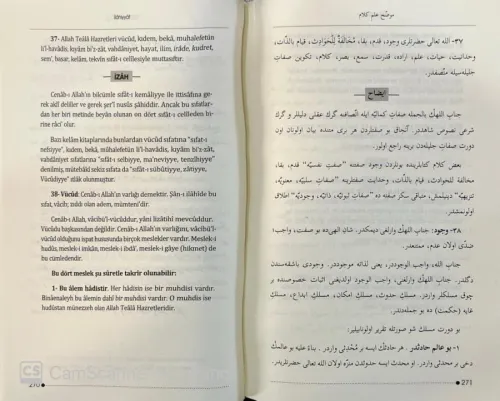 İzmirli
37- Allah Teâlâ Hazretleri vücûd, kıdem, bekâ, muhalefetün
li'l-havâdis, kıyâm bi'z-zât, vahdâniyet, hayat, ilim, irâde, kudret,
sem', basar, kelâm, tekvîn sıfât-ı celîlesiyle muttasıftır.
İZÂH
Cenâb-ı Allah'ın bilcümle sıfât-ı kemâliyye ile ittisâfına ge-
rek aklî deliller ve gerek şer'î nusûs şâhiddir. Ancak bu sıfatlar-
dan her biri metinde beyân olunan on dört sıfât-ı celîleden bi-
rine râci' olur.
Bazı kelâm kitaplarında bunlardan vücûd sıfatına "sıfat-ı
nefsiyye", kıdem, bekâ, muhalefetün li'l-havâdis, kıyâm bi'z-zât,
vahdâniyet sıfatlarına "sıfât-ı selbiyye, ma'neviyye, tenzîhiyye"
denilmiş, mütebâkî sekiz sıfata da "sıfât-ı sübûtiyye, zâtiyye,
Vücûdiyye" ıtlâk olunmuştur.
38- Vücûd: Cenâb-ı Allah'ın varlığı demektir. Şân-ı ilâhîde bu
sıfat, vâcib; zıddı olan adem, mümteni'dir.
Cenâb-ı Allah, vâcibü'l-vücûddur, yani lizâtihî mevcuddur.
Vücûdu başkasından değildir. Cenâb-ı Allah'ın varlığını, vâcibü'l-
vücûd olduğunu ispat hususunda birçok meslekler vardır. Meslek-i
hudûs, meslek-i imkân, meslek-i ibdâ', meslek-i gâye (hikmet) de
bu cümledendir.
Bu dört meslek şu sûretle takrir olunabilir:
1- Bu âlem hâdistir. Her hâdisin ise bir muhdisi vardır.
Binâenaleyh bu âlemin dahî bir muhdisi vardır. O muhdis ise
hudûstan münezzeh olan Allah Teâlâ Hazretleridir.
270
CS CamScanner
موضّح علم كلام
٣٧- الله تعالى حضرتلرى وجود، قدم، بقا، مُخَالَفَةٌ لِلْحَوَادِثِ، قيام بالذات،
وحدانيت، حيات، علم، اراده، قدرت، سمع، بصر، كلام، تكوين صفات
جليله‌سيله متّصفدر.
ايضاح
جناب اللهك بالجمله صفات كماليّه ايله اتّصافنه گرك عقلى دليللر و گرك
شرعى نصوص شاهددر. آنجاق بو صفتلردن هر برى متنده بيان اولونان اون
درت صفات جليله‌دن برينه راجع اولور.
بعض كلام كتابلرينده بونلردن وجود صفتنه "صفتِ نفسيّه" قدم، بقا،
مخالفة للحوادث، قيام بالذّات، وحدانيت صفتلرينه "صفاتِ سلبيّه، معنويّه،
تنزيهيّه" دينيلمش، متباقى سكز صفته ده "صفاتِ ثبوتيّه، ذاتيّه، وجوديّه" اطلاق
اولونمشدر.
٣٨- وجود: جناب اللهك وارلغى ديمكدر. شان الهى‌ده بو صفت، واجب؛
ضدّى اولان عدم، ممتنعدر.
جناب الله، واجب الوجوددر، يعنى لذاته موجوددر. وجودى باشقه‌سندن
دگلدر. جناب اللهك وارلغنى، واجب الوجود اولديغنى اثبات خصوصنده بر
چوق مسلكلر واردر. مسلك حدوث، مسلك امكان، مسلك ابداع، مسلك
غايه (حكمت) ده بو جمله‌دندر.
بو درت مسلك شو صورتله تقرير اولونابيلير:
١- بو عالم حادثدر. هر حادثك ايسه بر مُحْدِثى واردر. بناءً عليه بو عالمك
دخى بر محدثى واردر. او محدث ايسه حدوثدن منزّه اولان الله تعالى حضرتلريدر.
271